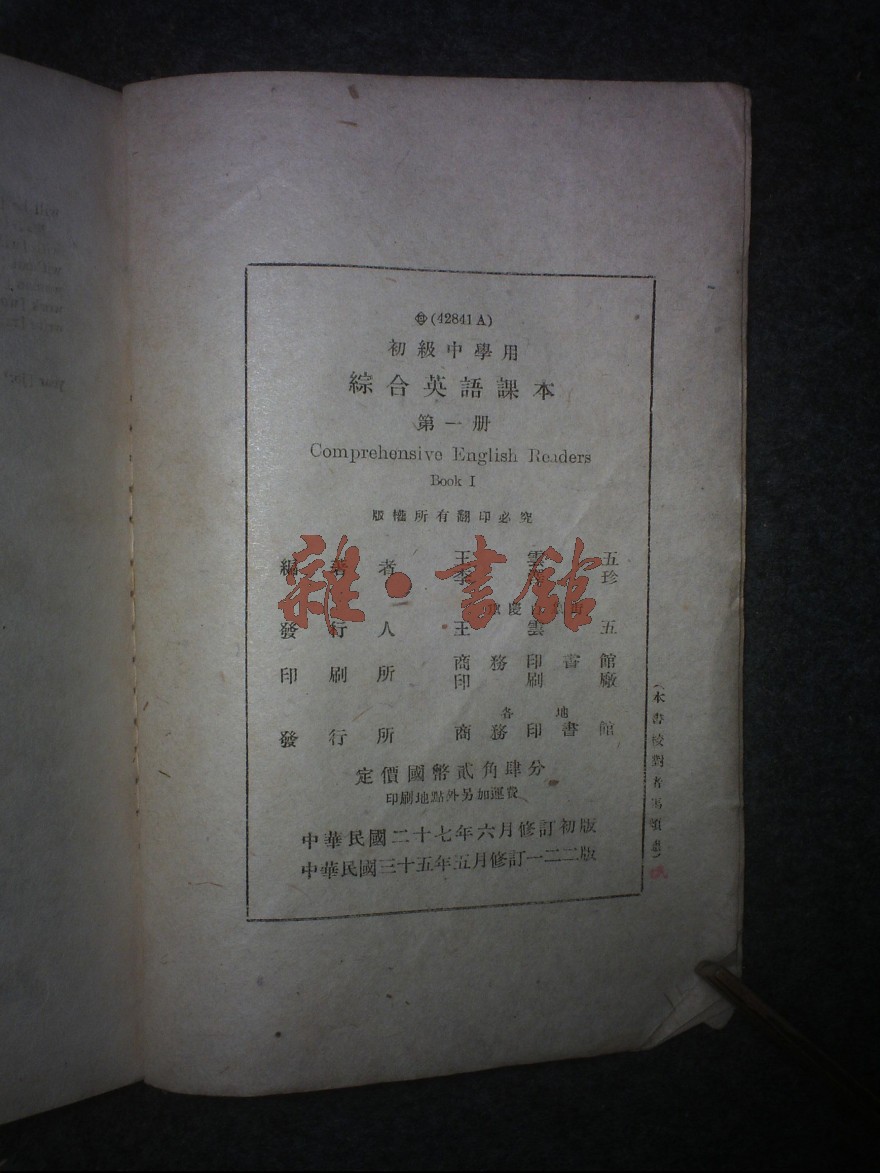 (42841 A)
初級中學用
綜合英語課本
第一册
Comprehensive English Readers
Book I
版權所有翻印必究
編著者 王雲五
李 珍
雜·書館
發行人 王雲五
印刷所 商務印書館
印刷廠
各地
發行所 商務印書館
定價國幣貳角肆分
印刷地點外另加運費
中華民國二十七年六月修訂初版
中華民國三十五年五月修訂一二二版
(本書校對者馮